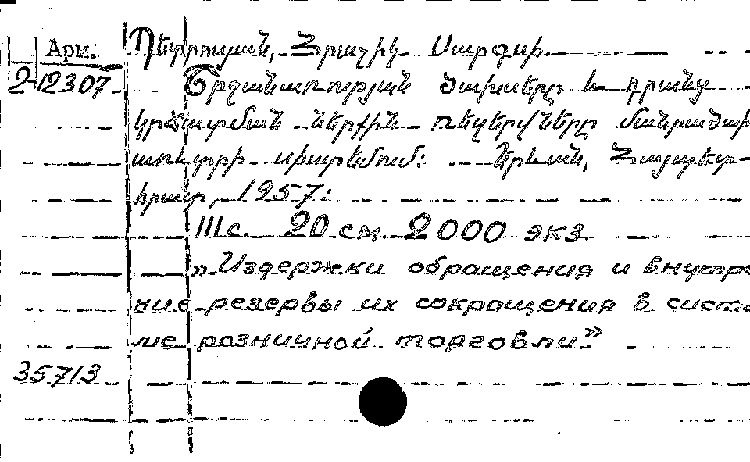 Арм.
Պետրոսյան, Հրաչիկ Սարգսի
2-12307
Շրջանառության ծախսերը և դրանց
կրճատման ներքին ռեզերվները մանրածախ
առևտրի սիստեմում: Երևան, Հայպետ-
հրատ, 1957:
111 с. 20 см. 2000 экз.
„Издержки обращения и внутрен
ние резервы их сокращения в систе
ме розничной торговли”
35713